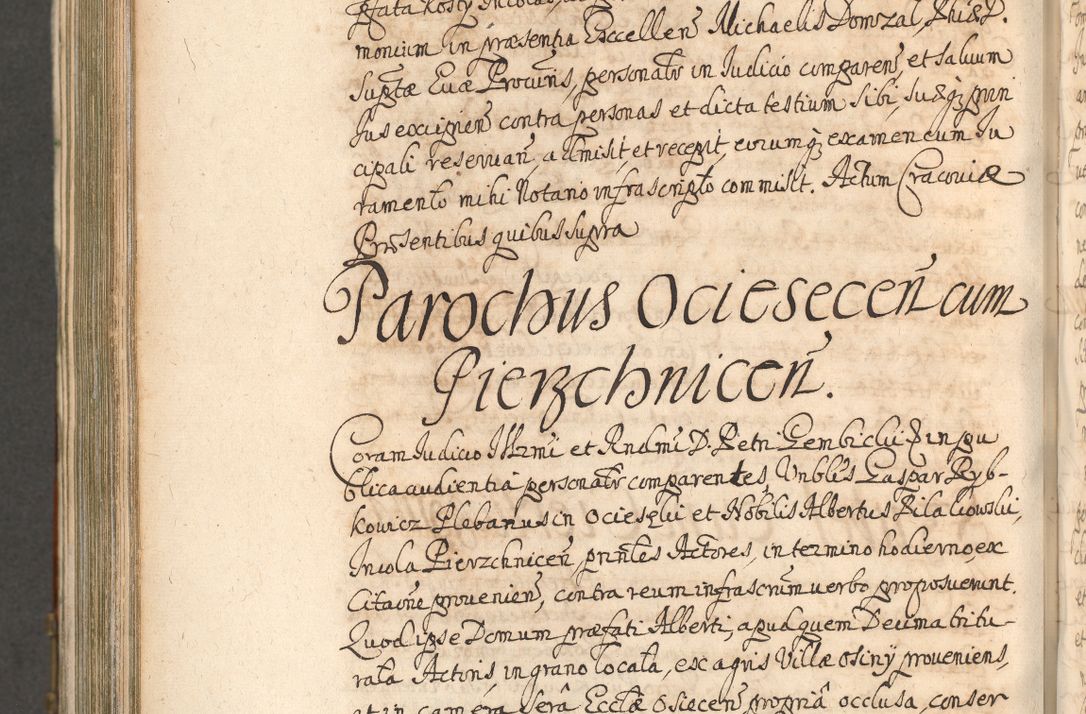 monium in præsentia Excellen Michaelis Domzał, Phi&D.
suptæ Euæ Procuris, personalr in Iudicio comparen, et saluum
Ius excipien contra personas et dicta testium sibi, suisq; prin
cipali reseruan, admisit et recepit, eorumq; examen cum Iu
ramento mihi Notario infrascripto commisit. Actum Cracouiæ
Præsentibus quibus supra
Parochus Ociesecen cum
Pierzchnicen.
Coram Iudicio Illrmi et Rndmi D. Petri Gembicki & in pu
blica audientia personalr comparentes, Vnblis Gaspar Ryb-
kowicz Plebanus in Ociesęki et Nobilis Albertus Bilakowski,
Incola Pierzchnicen, printes Actores, in termino hodierno, ex
Citaone prouenien, contra reum infrascrium verbo proposuerunt.
Quod ipse Domum præfati Alberti, apud quem Decima tritu-
rala Actoris, in grano locata, ex agris Villæ Osiny, proueniens,
et in camera sera Ecclæ Osiecen propria occlusa, conser